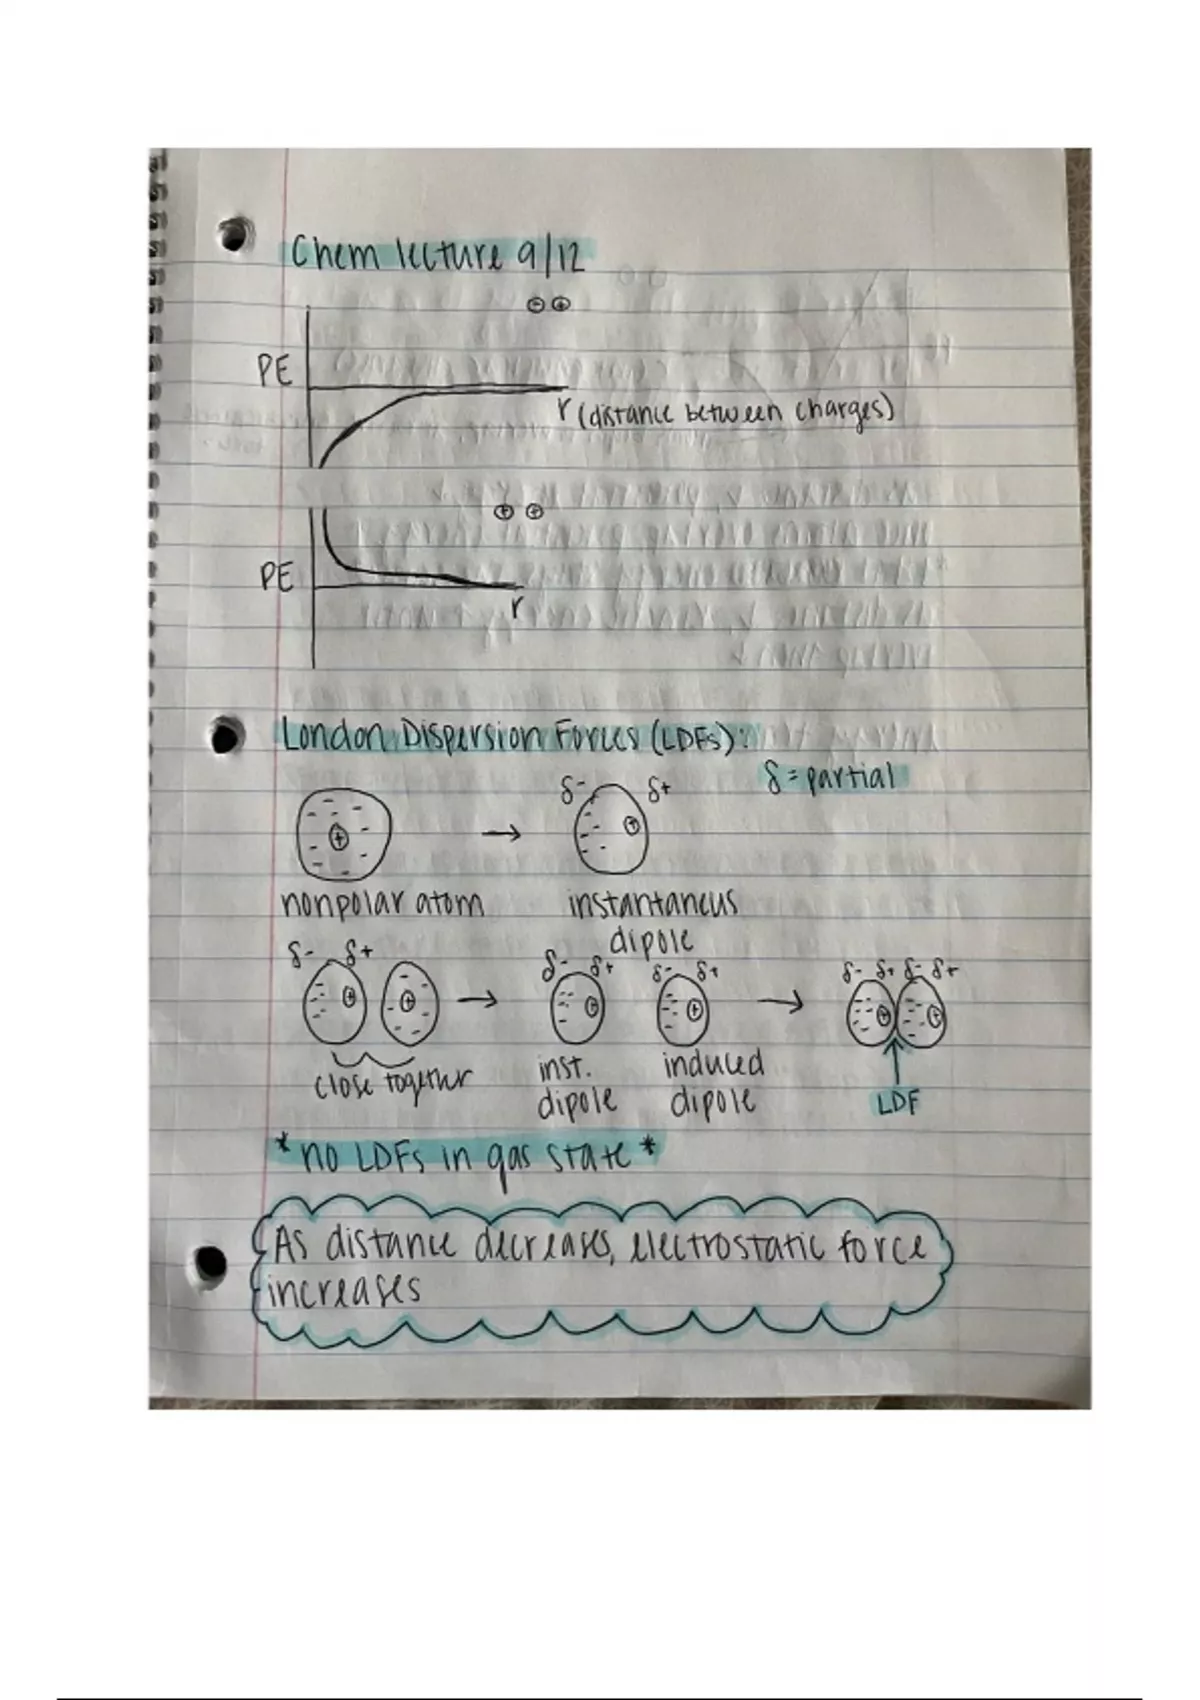 Chem lecture 9/12
⊖ ⊕
PE
r (distance between charges)
⊕ ⊕
PE
r
London Dispersion Forces (LDFs):
δ = partial
δ- δ+
nonpolar atom → instantaneus
dipole
δ- δ+ δ- δ+ δ- δ+ δ- δ+ δ- δ+
→ →
close together
inst. induced
dipole dipole
LDF
*no LDFs in gas state*
As distance decreases, electrostatic force
increases